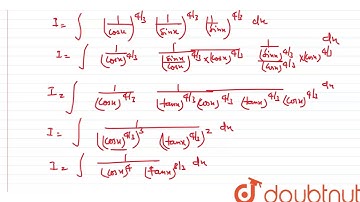 I = ∫ (1/cosx)^4/3 (1/sinx)^4/3 (1/sinx)^4/3 dx
I = ∫ 1/(cosx)^4/3 1/((sinx/cosx)^4/3 × (cosx)^4/3) 1/((sinx)^4/3/(cosx)^4/3 × (cosx)^4/3) dx
I = ∫ 1/(cosx)^4/3 1/((tanx)^4/3 (cosx)^4/3 (tanx)^4/3 (cosx)^4/3) dx
I = ∫ 1/(((cosx)^4/3)^3 ((tanx)^4/3)^2) dx
I = ∫ 1/((cosx)^4 (tanx)^8/3) dx
doubtnut